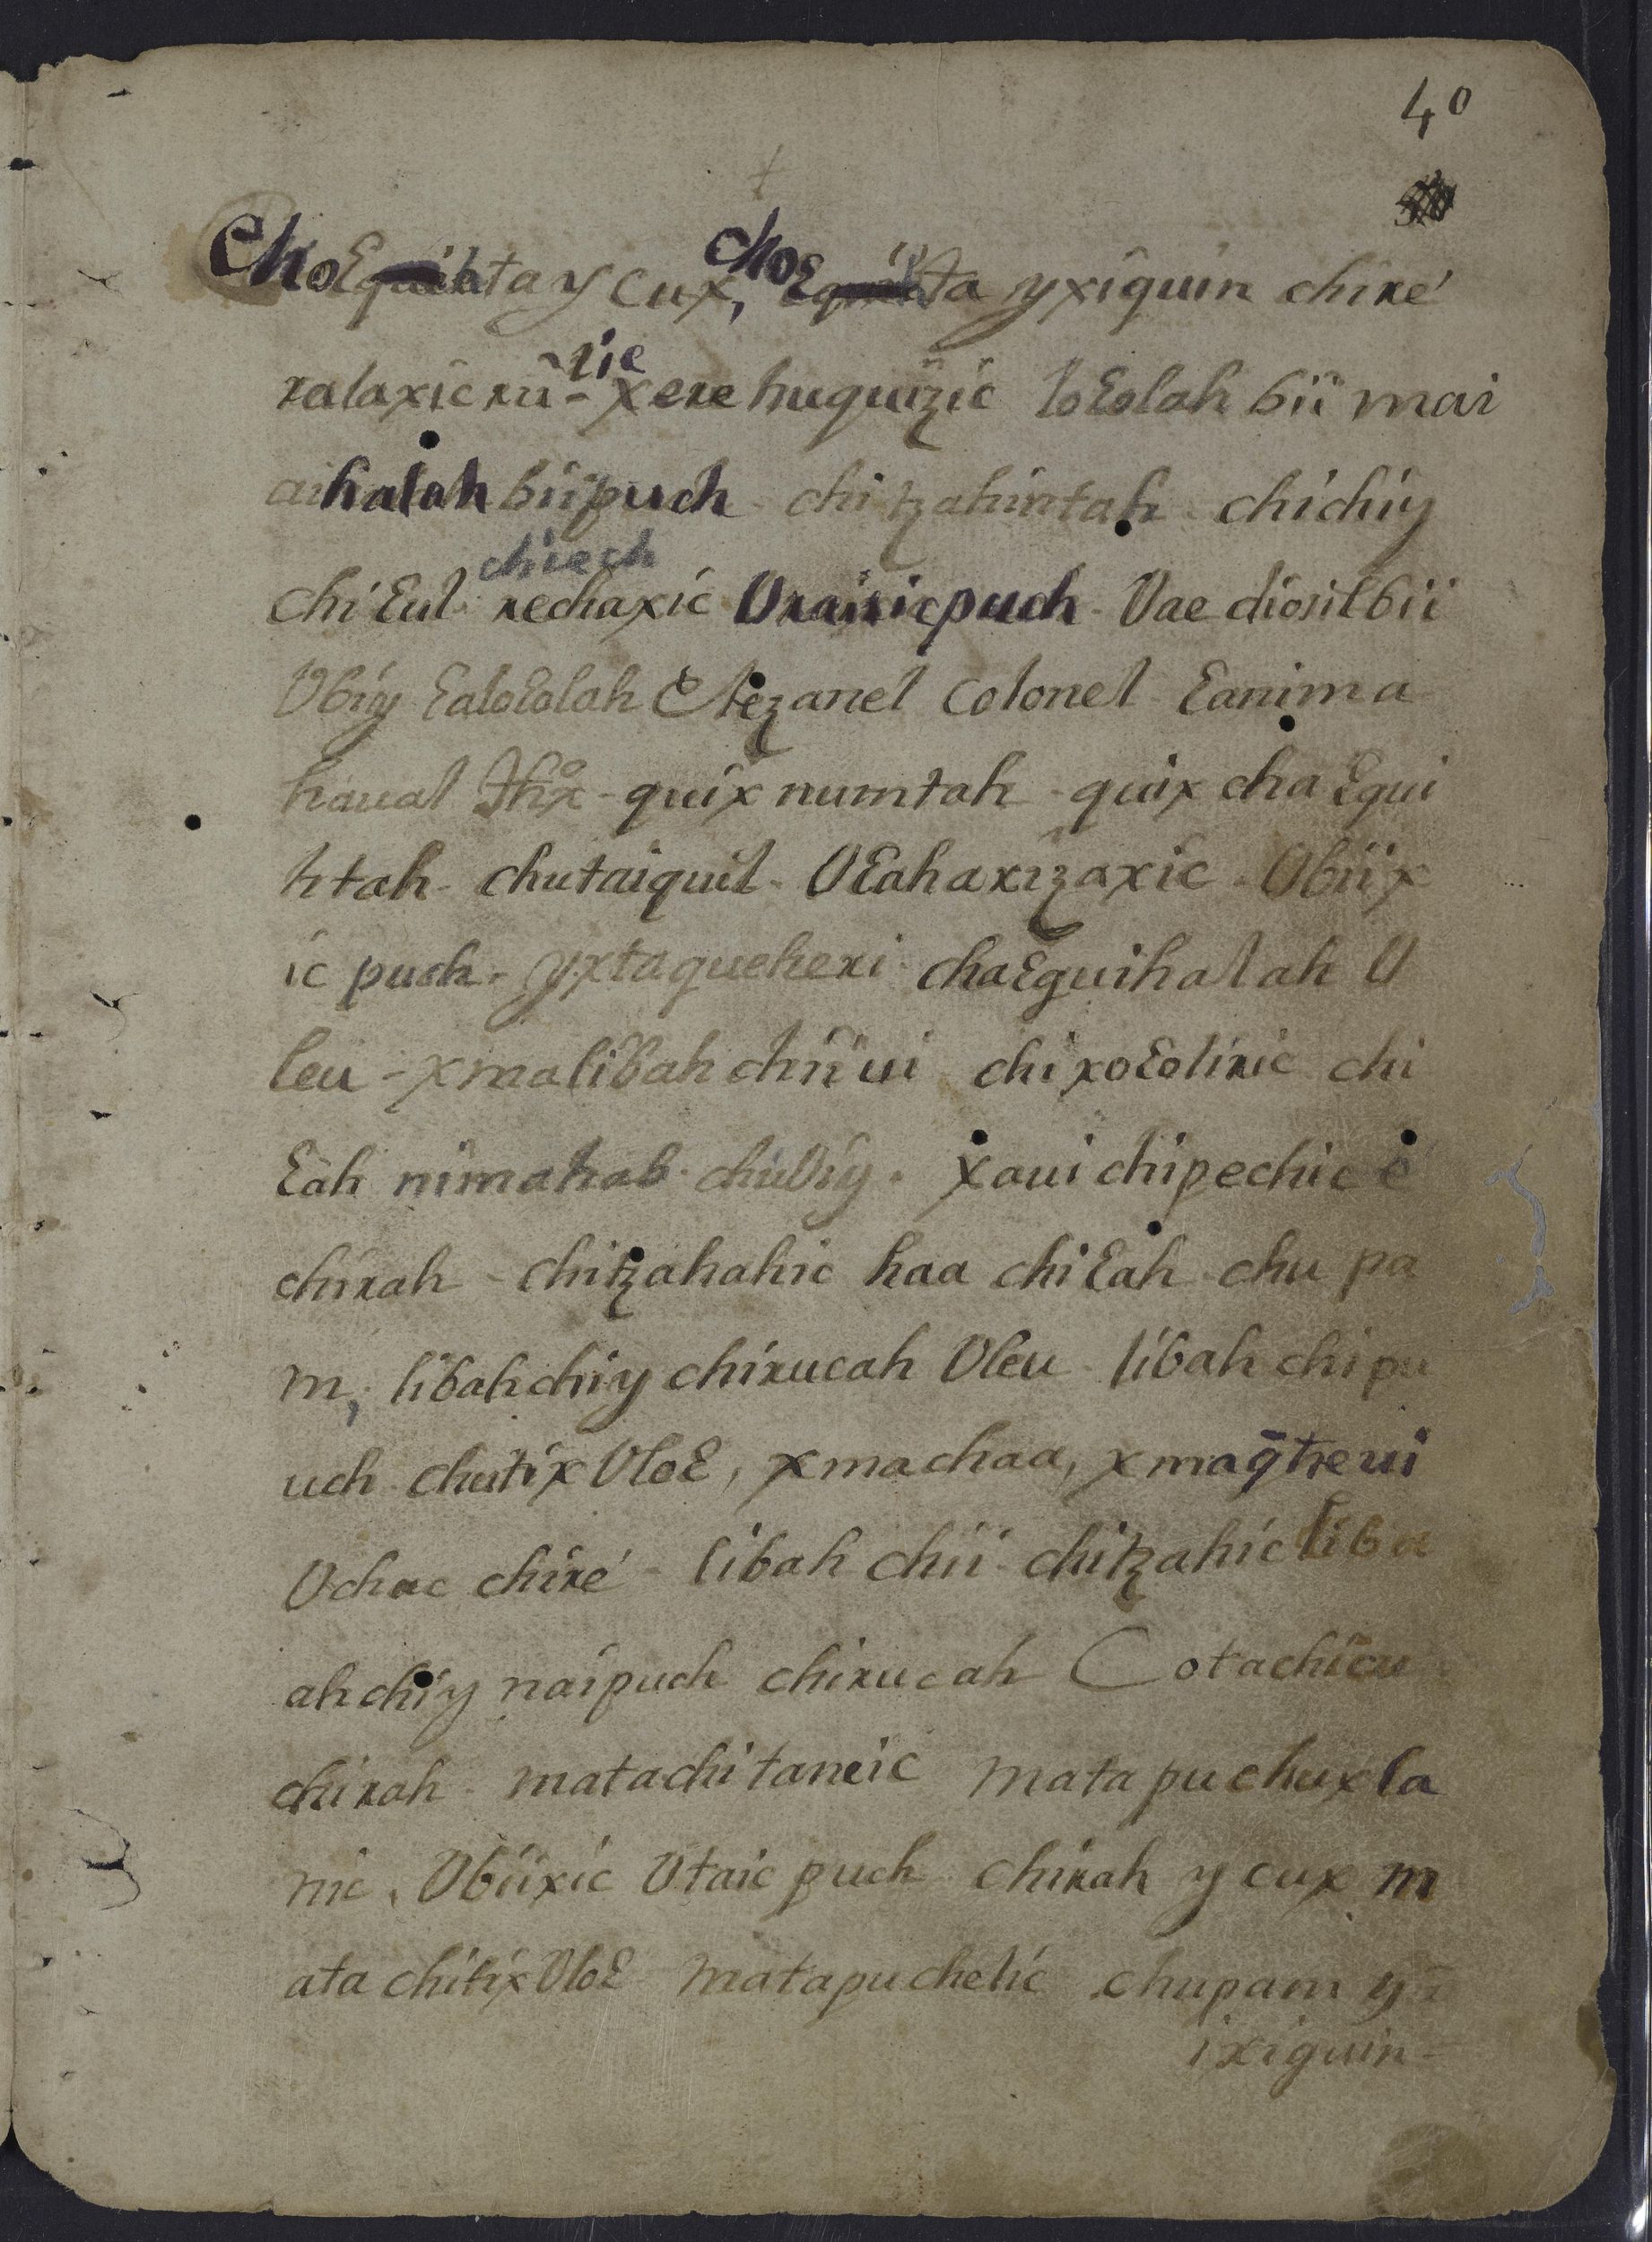 40
choƐquihta y cux, choƐquihta yxiquin chiré
ralaxic rú - xere huquizic loƐolah bii mai
aihalah biipuch - chi tzahintah chichiy
chiech
chi Ɛul rechaxic Vraixicpuch - Vae diosil bii
Vbiy ƐaloƐolah Etezanel Colonel Ɛanima
haual Jhx̊ - quix numtah - quix cha Ɛqui
htah - chutaiquil - VƐaharizaxic - Vbiix
ic puch - yxtaqueheri chaƐquihalah V
leu - xmalibah chii ui chi xoƐoliric chi
Ɛah nimahab chuviy - xaui chipechic é
chirah - chitzahahic haa chi Ɛah chu pa
m, libahchiy chirucah Vleu libah chi pu
uch chutix VloƐ, xmachaa, xmaq̄treui
Vchac chiré - libah chii chitzahic liba
ahchiy naipuch chirucah Cotachicu
chirah - matachitaneic matapuchuxla
nic, Vbiixic Vtaic puch chirah y cux m
ata chitix VloƐ matapuchelic chupam y=
ixiquin=